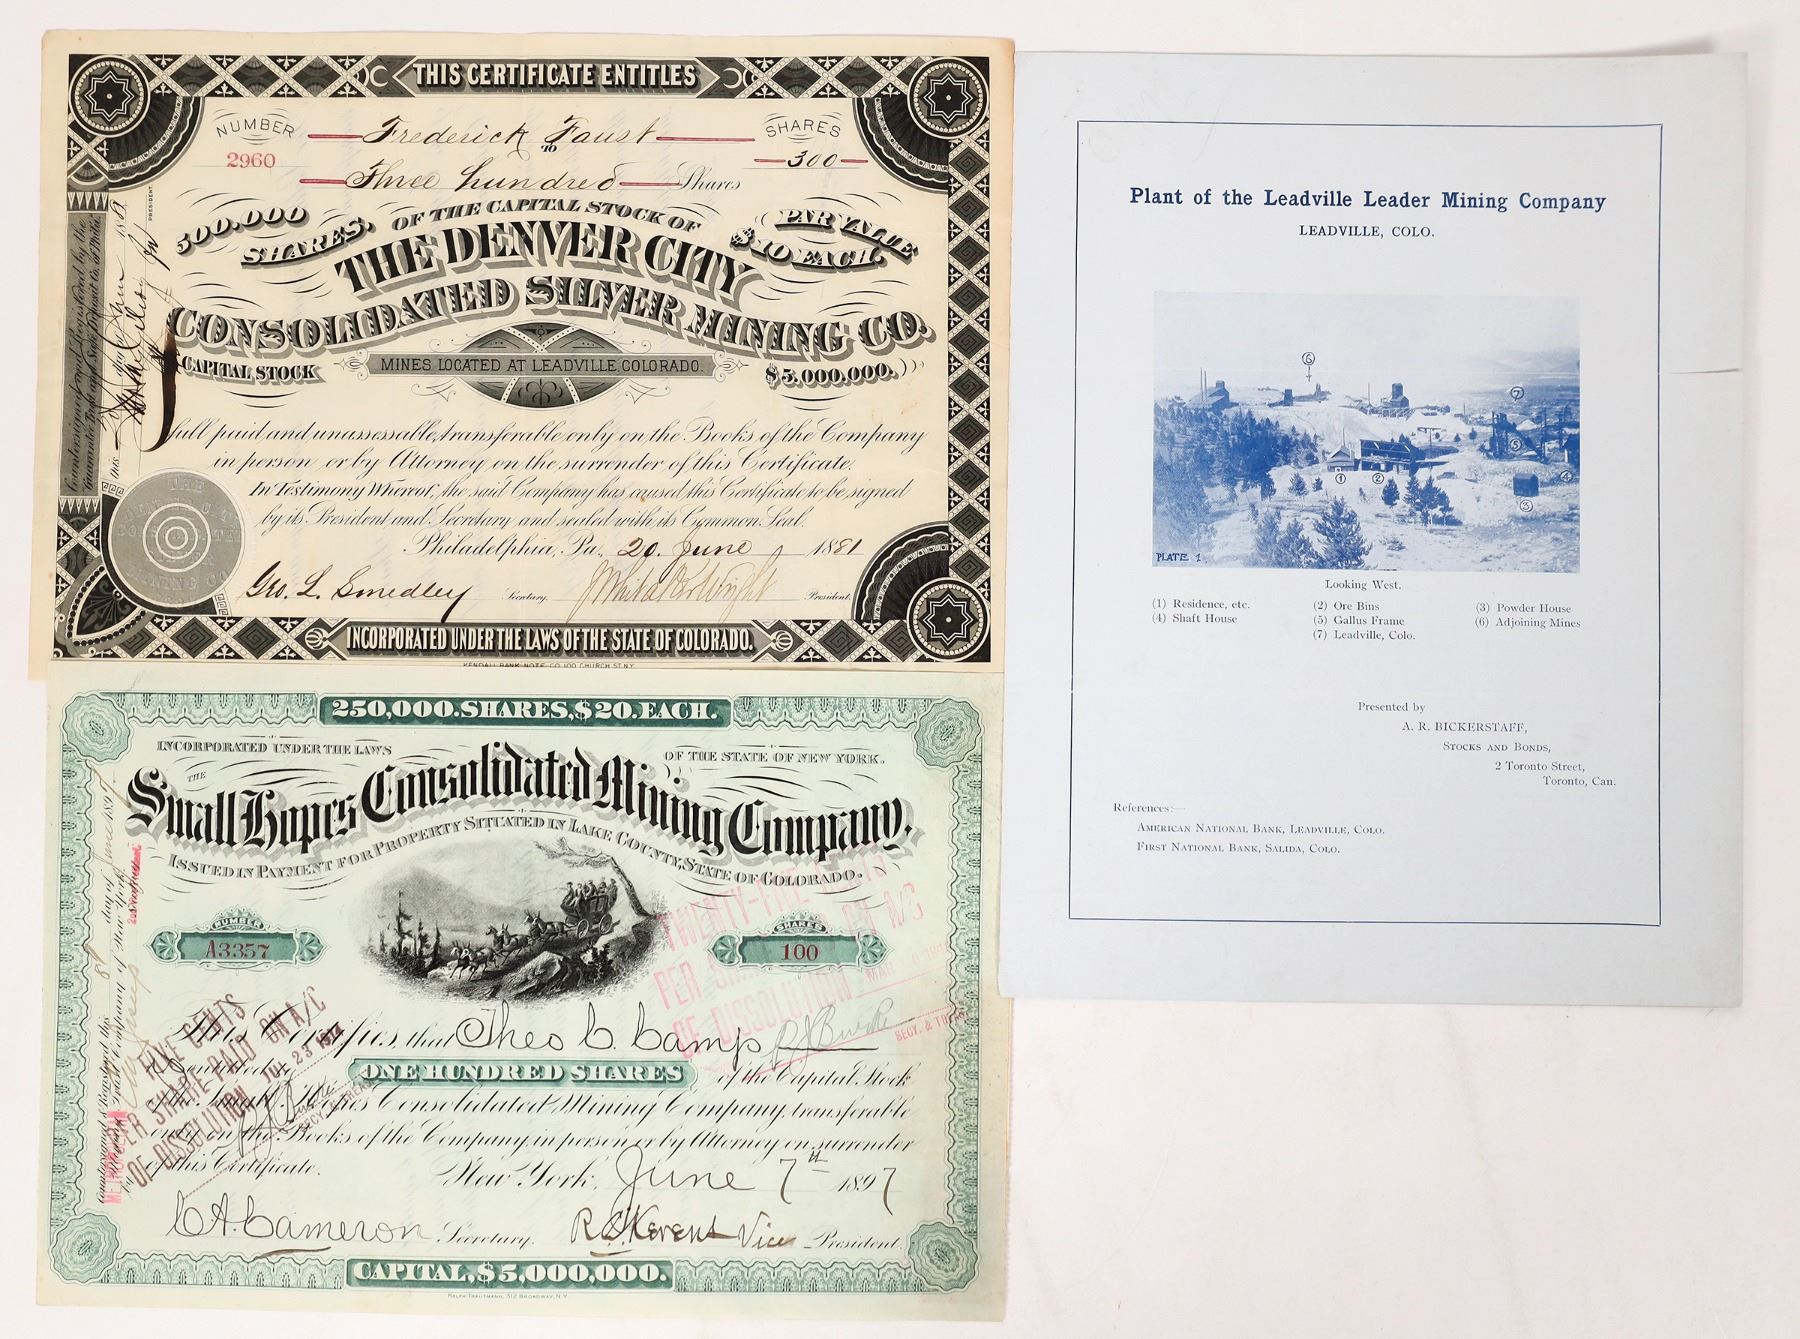 THIS CERTIFICATE ENTITLES
NUMBER
2960
Frederick Faust
TO
SHARES
300
Three hundred Shares
500,000 SHARES,
OF THE CAPITAL STOCK OF
PAR VALUE $10 EACH.
THE DENVER CITY
CONSOLIDATED SILVER MINING CO.
CAPITAL STOCK
MINES LOCATED AT LEADVILLE, COLORADO.
$5,000,000.
full paid and unassessable, transferable only on the Books of the Company
in person or by Attorney on the surrender of this Certificate.
In Testimony Whereof, the said Company has caused this Certificate to be signed
by its President and Secretary and sealed with its Common Seal.
Philadelphia, Pa., 20 June 1881
Geo. L. Smedley Secretary. President.
INCORPORATED UNDER THE LAWS OF THE STATE OF COLORADO.
KENDALL BANK NOTE CO. 100 CHURCH ST. N.Y.
Countersigned and Registered by the
Guarantee Trust and Safe Deposit Co. of Phila.
this day of June 188
PRESIDENT
250,000. SHARES, $20. EACH.
INCORPORATED UNDER THE LAWS
OF THE STATE OF NEW YORK.
THE
Small Hopes Consolidated Mining Company.
ISSUED IN PAYMENT FOR PROPERTY SITUATED IN LAKE COUNTY, STATE OF COLORADO.
NUMBER
A3357
SHARES
100
TWENTY-FIVE CENTS
PER SHARE PAID ON A/C
OF DISSOLUTION
SECY. & TREAS.
FIVE CENTS
PER SHARE PAID ON A/C
OF DISSOLUTION JUL 23 1914
SECY & TREAS
This Certifies, that Theo C. Camp
is entitled to ONE HUNDRED SHARES of the Capital Stock
of the Small Hopes Consolidated Mining Company, transferable
only on the Books of the Company, in person or by Attorney on surrender
of this Certificate.
New York, June 7th 1897
C A Cameron Secretary. Vice President.
CAPITAL, $5,000,000.
RALPH TRAUTMANN, 312 BROADWAY, N.Y.
Plant of the Leadville Leader Mining Company
LEADVILLE, COLO.
6
7
5
4
1
2
3
PLATE 1
Looking West.
(1) Residence, etc. (2) Ore Bins (3) Powder House
(4) Shaft House (5) Gallus Frame (6) Adjoining Mines
(7) Leadville, Colo.
Presented by
A. R. BICKERSTAFF,
STOCKS AND BONDS,
2 Toronto Street,
Toronto, Can.
References:—
AMERICAN NATIONAL BANK, LEADVILLE, COLO.
FIRST NATIONAL BANK, SALIDA, COLO.